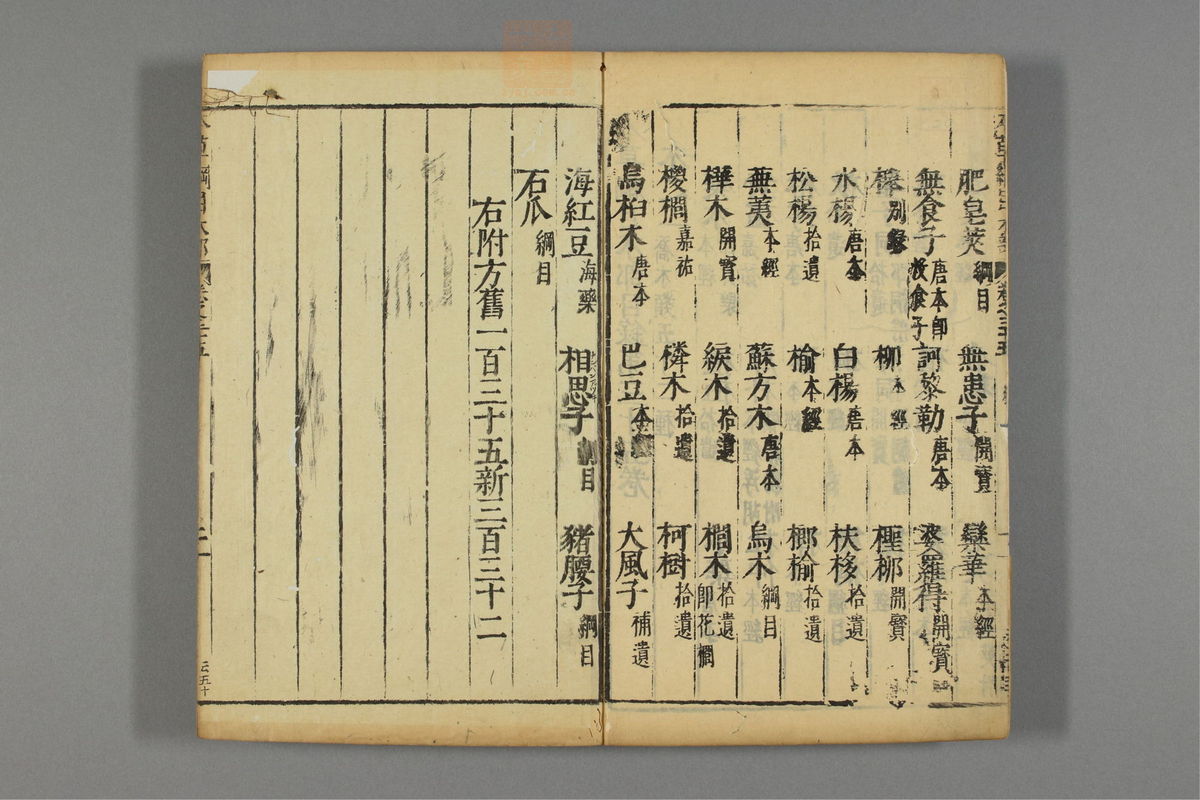 肥皂莢綱目 無患子開寶 欒華本經
無食子唐本即沒食子 訶黎勒唐本 婆羅得開寶
櫸別錄 柳本經 檉柳開寶
水楊唐本 白楊唐本 扶栘拾遺
松楊拾遺 榆本經 榔榆拾遺
蕪荑本經 蘇方木唐本 烏木綱目
樺木開寶 緱木拾遺 櫚木拾遺即花櫚
椶櫚嘉祐 橉木拾遺 柯樹拾遺
烏桕木唐本 巴豆本 大風子補遺
海紅豆海藥 相思子綱目 豬腰子綱目
石瓜綱目
右附方舊一百三十五新三百三十二